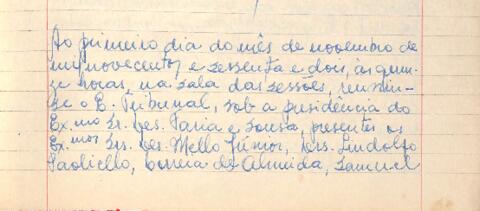 Ao primeiro dia do mês de novembro de
mil novecentos e sessenta e dois, às quin-
ze horas, na sala das sessões, reuniu-
se o E. Tribunal, sob a presidência do
Ex.mo Sr. Des. Faria e Sousa, presentes os
Ex.mos Srs. Des. Mello Júnior, Drs. Lindolfo
Paoliello, Correia de Almeida, Samuel